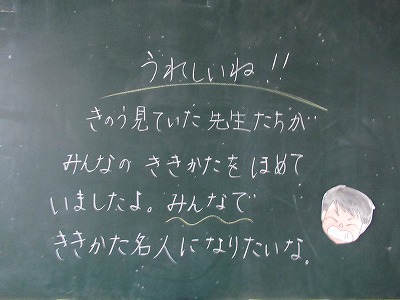 うれしいね!!
きのう見ていた先生たちが
みんなの ききかたを ほめて
いましたよ。みんなで
ききかた名人になりたいな。